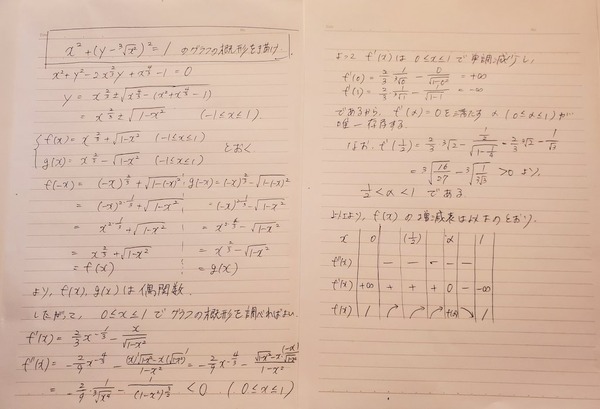 x² + (y - ³√x²)² = 1 のグラフの概形を描け.
x² + y² - 2x^{2/3}y + x^{4/3} - 1 = 0
y = x^{2/3} ± √(x^{4/3} - (x² + x^{4/3} - 1))
= x^{2/3} ± √(1-x²) (-1≤x≤1).
{ f(x) = x^{2/3} + √(1-x²) (-1≤x≤1)
g(x) = x^{2/3} - √(1-x²) (-1≤x≤1) とおく
f(-x) = (-x)^{2/3} + √(1-(-x)²) g(-x) = (-x)^{2/3} - √(1-(-x)²)
= (-x)^{2·1/3} + √(1-x²) = (-x)^{2·1/3} - √(1-x²)
= x^{2·1/3} + √(1-x²) = x^{2·1/3} - √(1-x²)
= x^{2/3} + √(1-x²) = x^{2/3} - √(1-x²)
= f(x) = g(x)
より, f(x), g(x) は偶関数.
したがって, 0≤x≤1 でグラフの概形を調べればよい.
f'(x) = 2/3 x^{-1/3} - x/√(1-x²)
f''(x) = -2/9 x^{-4/3} - ((x)'√(1-x²) - x(√(1-x²))')/(1-x²) = -2/9 x^{-4/3} - (√(1-x²) - x·(-x)/√(1-x²))/(1-x²)
= -2/9 · 1/³√x⁴ - 1/(1-x²)^{3/2} < 0 (0≤x≤1)
よって f'(x) は 0≤x≤1 で単調減少し,
f'(0) = 2/3 · 1/³√0 - 0/√(1-0²) = +∞
f'(1) = 2/3 · 1/³√1 - 1/√(1-1) = -∞
であるから, f'(α)=0 を満たす α (0≤α≤1) が
唯一存在する.
なお, f'(1/2) = 2/3 ³√2 - (1/2)/√(1-1/4) = 2/3 ³√2 - 1/√3
= ³√(16/27) - ³√(1/(3√3)) > 0 より,
1/2 < α < 1 である.
以上より, f(x) の増減表は以下のとおり.
x | 0 | | (1/2) | | α | | 1
f''(x) | | - | - | - | - | - |
f'(x) | +∞ | + | + | + | 0 | - | -∞
f(x) | 1 | ↗ | | ↗ | f(α) | ↘ | 1